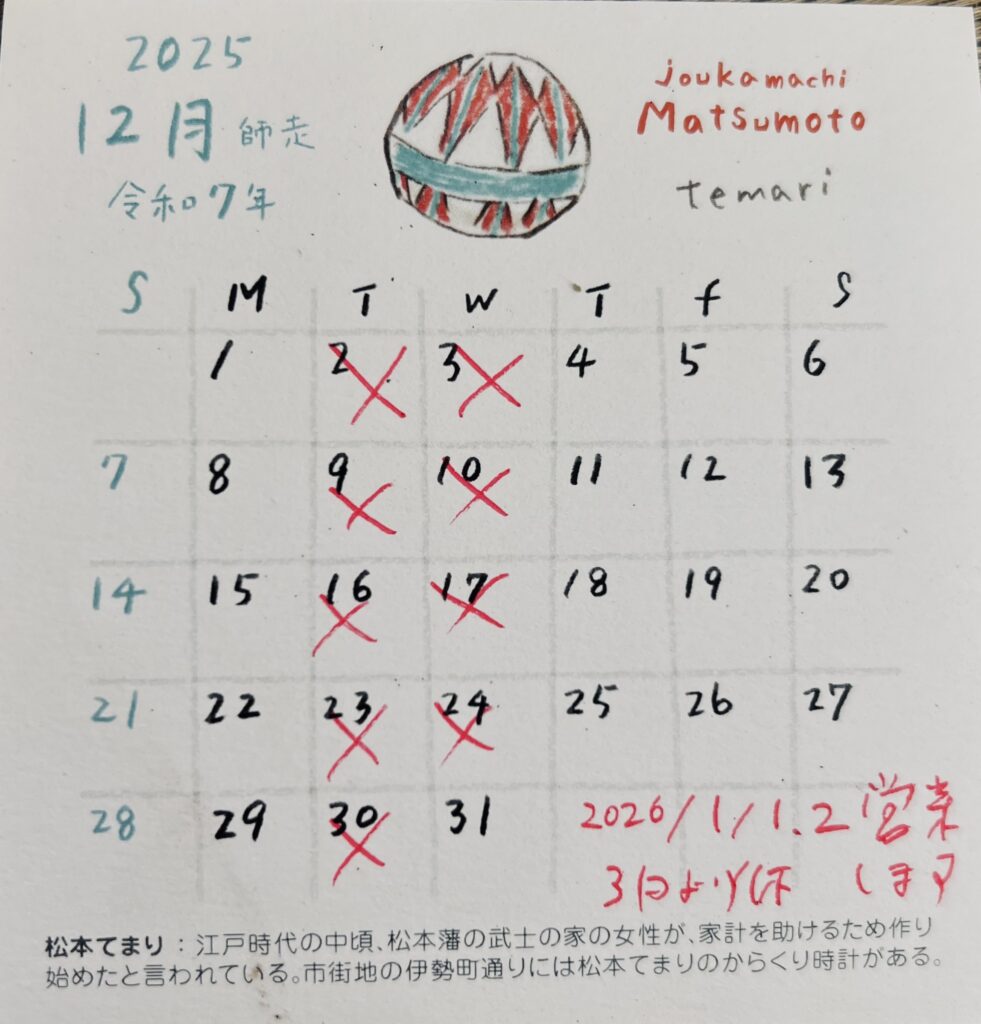 2025
12月 師走
令和7年
joukamachi
Matsumoto
temari
S M T W T f S
1 2 3 4 5 6
7 8 9 10 11 12 13
14 15 16 17 18 19 20
21 22 23 24 25 26 27
28 29 30 31
2026/1/1.2 営業
3日より休 します
松本てまり：江戸時代の中頃、松本藩の武士の家の女性が、家計を助けるため作り
始めたと言われている。市街地の伊勢町通りには松本てまりのからくり時計がある。